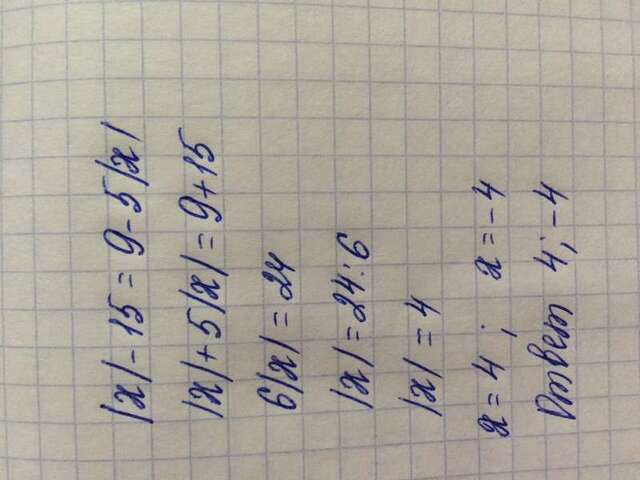 |x| - 15 = 9 - 5|x|
|x| + 5|x| = 9 + 15
6|x| = 24
|x| = 24 : 6
|x| = 4
x = 4 ; x = -4
Ответ 4; -4